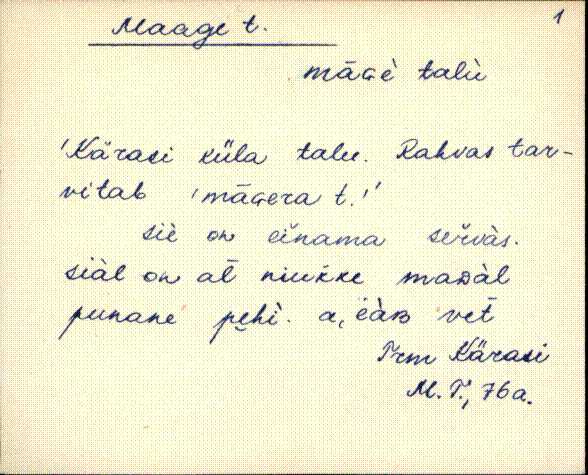 1
Maage t.
māGè talù
'Kärasi küla talu. Rahvas tar-
vitab 'māGera t.!'
siè on eінama servàs.
siàl on at niukke maDàl
punane pehì. a, eàB vet
Trm Kärasi
M. T., 76a.